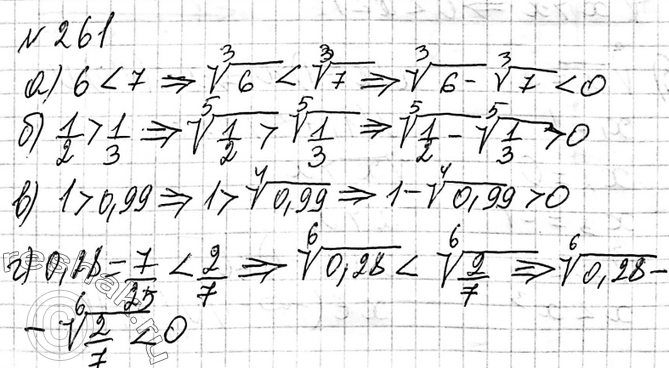 № 261
а) 6 < 7 ⇒ ∛6 < ∛7 ⇒ ∛6 - ∛7 < 0
б) 1/2 > 1/3 ⇒ ⁵√(1/2) > ⁵√(1/3) ⇒ ⁵√(1/2) - ⁵√(1/3) > 0
в) 1 > 0,99 ⇒ 1 > ⁴√0,99 ⇒ 1 - ⁴√0,99 > 0
г) 0,28 = 7/25 < 2/7 ⇒ ⁶√0,28 < ⁶√(2/7) ⇒ ⁶√0,28 -
- ⁶√(2/7) < 0